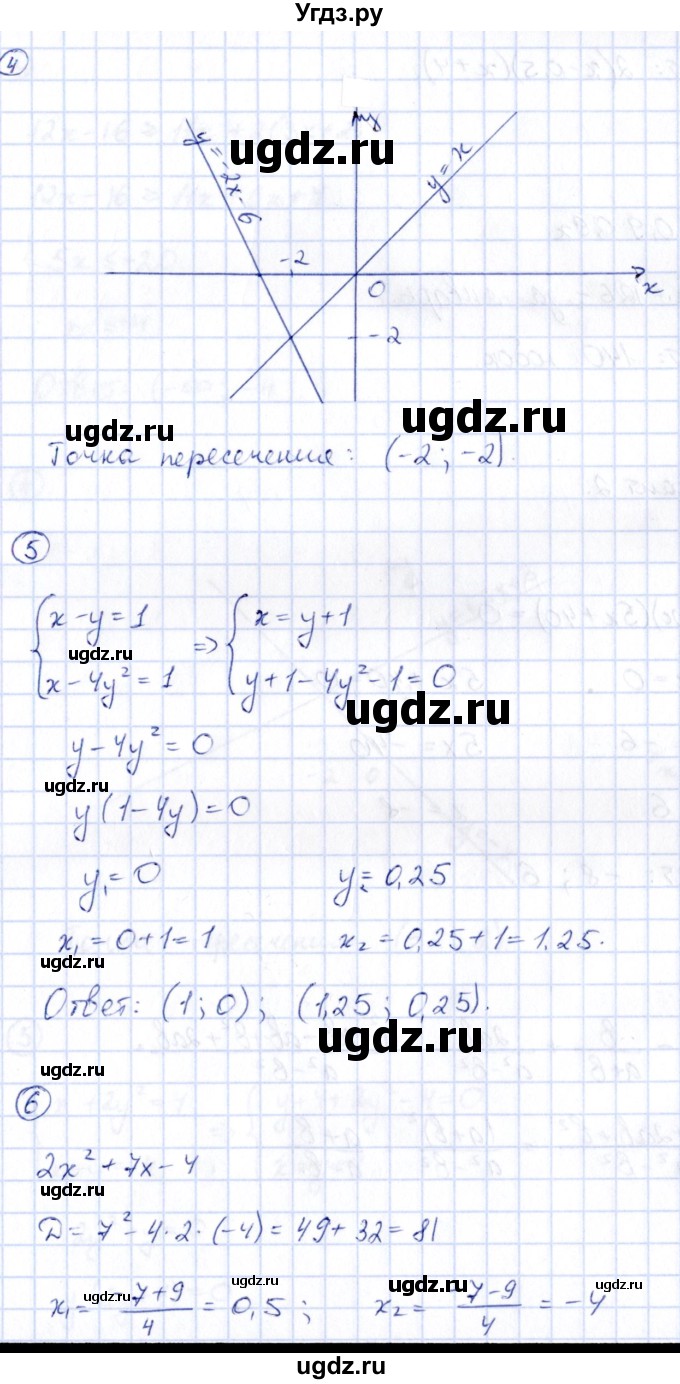 Угдз.ру
4
y
ugdz.ru
y = -2x - 6
y = x
-2
0
x
-2
ugdz.ru
ugdz.ru
Точка пересечения: (-2; -2).
5
{x - y = 1 => {x = y + 1
ugdz.ru
{x - 4y² = 1 {y + 1 - 4y² - 1 = 0
ugdz.ru
y - 4y² = 0
ugdz.ru
y(1 - 4y) = 0
y₁ = 0 y₂ = 0,25
x₁ = 0 + 1 = 1 x₂ = 0,25 + 1 = 1,25.
ugdz.ru
Ответ: (1; 0); (1,25; 0,25).
ugdz.ru
ugdz.ru
6
2x² + 7x - 4
ugdz.ru
D = 7² - 4·2·(-4) = 49 + 32 = 81
ugdz.ru ugdz.ru ugdz.ru
x₁ = -7+9/4 = 0,5; x₂ = -7-9/4 = -4
ugdz.ru